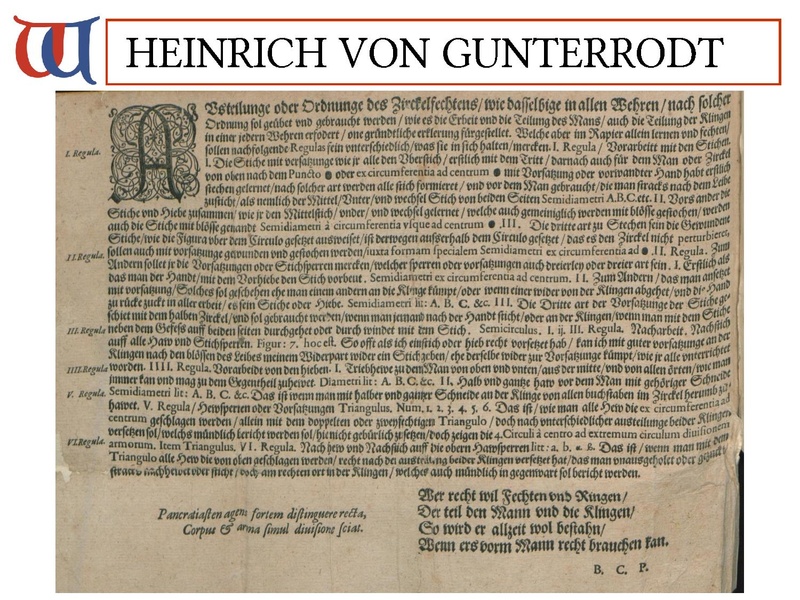 HEINRICH VON GUNTERRODT
Vsteilunge oder Ordnunge des Zirckelfechtens/ wie dasselbige in allen Wehren/ nach solcher
Ordnung sol geübet vnd gebraucht werden/ wie es die Erbeit vnd die Teilung des Mans/ auch die Teilung der Klingen
in einer jedern Wehren erfodert/ eine gründtliche erklerung fürgestellet. Welche aber im Rapier allein lernen vnd fechten/
I. Regula.
sollen nachfolgende Regulas sein unterschiedlich/ was sie in sich halten/ mercken. I. Regula/ Vorarbeit mit den Stichen.
I. Die Stiche mit versatzunge wie jr alle den Vberstich/ erstlich mit dem Tritt/ darnach auch für dem Man oder Zirckel
von oben nach dem Puncto ● oder ex circumferentia ad centrum ● mit Vorsatzung oder vorwandter Hand habt erstlich
stechen gelernet/ nach solcher art werden alle stich formieret/ vnd vor dem Man gebraucht/ die man stracks nach dem Leibe
zusticht/ als nemlich der Mittel/ Vnter/ vnd wechsel Stich von beiden Seiten Semidiametri A.B.C. etc. II. Vors ander die
Stiche vnd Hiebe zusammen/ wie jr den Mittelstich/ vnder/ vnd wechsel gelernet/ welche auch gemeiniglich werden mit blösse gestochen/ werden
auch die Stich mit blösse genandt Semidiametri à circumferentia vsque ad centrum ● III. Die dritte art zu Stechen sein die Gewundene
Stiche/ wie die Figura vber dem Circulo gesetzt ausweiset/ ist derwegen ausserhalb dem Circulo gesetzt/ das es den Zirckel nicht perturbieret,
II. Regula.
sollen auch mit vorsatzunge gewunden vnd gestochen werden/ iuxta formam specialem Semidiametri ex circumferentia ad ● II. Regula. Zum
Andern sollet jr die Vorsatzungen oder Stichsperren mercken/ welcher sperren oder vorsatzungen auch dreierley oder dreier art sein. I. Erstlich als
das man der Hand/ mit dem Vorhiebe den Stich vorbeut. Semidiametri ex circumferentia ad centrum. II. Zum Andern/ das man ansetzt
mit vorsatzung/ Solches sol geschehen ehe man einem andern an die Klinge kümpt/ oder wenn einer wider vor der Klingen abgehet/ vnd die Hand
zu rücke zuckt in aller erbeit/ es sein Stiche oder Hiebe. Semidiametri lit: A. B. C. &c. III. Die Dritte art der Vorsatzung der Stiche ge-
schiet mit dem halben Zirckel/ vnd sol gebraucht werden/ wenn man jemand nach der Hand sticht/ oder an der Klingen/ wenn man mit dem Stiche
III. Regula
neben dem Gefess auff beiden seiten durchgehet oder durch windet mit dem Stich. Semicirculus. I. ij. III. Regula. Nacharbeit. Nachstich
auff alle Haw vnd Stichsperren. Figur: 7. hoc est. So offt als ich einstich oder hieb recht vorsetzet hab/ kan ich mit guter vorsatzunge an der
Klingen nach den blössen des Leibes meinem Widerpart wider ein Stich geben/ ehe derselbe wider zur Vorsatzunge kümpt/ wie jr alle vnterrichtet
IIII. Regula
worden. IIII. Regula. Vorarbeit von den hieben. I. Triebhewe zu dem Man von oben vnd vnten/ aus der mitte/ vnd von allen örten/ wie man
immer kan vnd mag zu dem Gegentheil zuhewet. Diametri lit: A. B. C. &c. II. Halb vnd gantze haw vor dem Man mit gehöriger Schneide
V. Regula
Semidiametri lit: A. B. C. &c. Das ist wenn man mit halber vnd gantzer Schneide an der Klinge von allen buchstaben im Zirckel herumb zu-
hawet. V. Regula/ Hewsperren oder Vorsatzungen Triangulus. Num. 1. 2. 3. 4. 5. 6. Das ist/ wie man alle Hew die ex circumferentia ad
centrum geschlagen werden/ allein mit dem doppelten oder zweyfachten Triangulo/ doch nach vnterschiedlicher austeilunge beider Klingen
versetzen sol/ welchs mündlich bericht werden sol/ hie nicht gebürlich zusetzen/ doch zeigen die 4. Circuli à centro ad extremum circulum diuisionem
VI. Regula.
armorum. Item Triangulus. VI. Regula. Nach hew vnd Nachstich auff die obern Hawsperren litt: a, b, Das ist/ wenn man mit dem
Triangulo alle Hew die von oben geschlagen werden/ recht nach der austeilung beider Klingen versetzet hat/ das man vnausgeholet oder
nachhewet oder sticht/ doch am rechten ort in der Klingen/ welches auch mündlich in gegenwart sol bericht werden.
Pancratiasten agens fortem distinguere recta,
Corpus & arma simul diuisione sciat.
Wer recht wil Fechten vnd Ringen/
Der teil den Mann vnd die Klingen/
So wird er allzeit wol bestahn/
Wenn ers vorm Mann recht brauchen kan.
B. C. P.